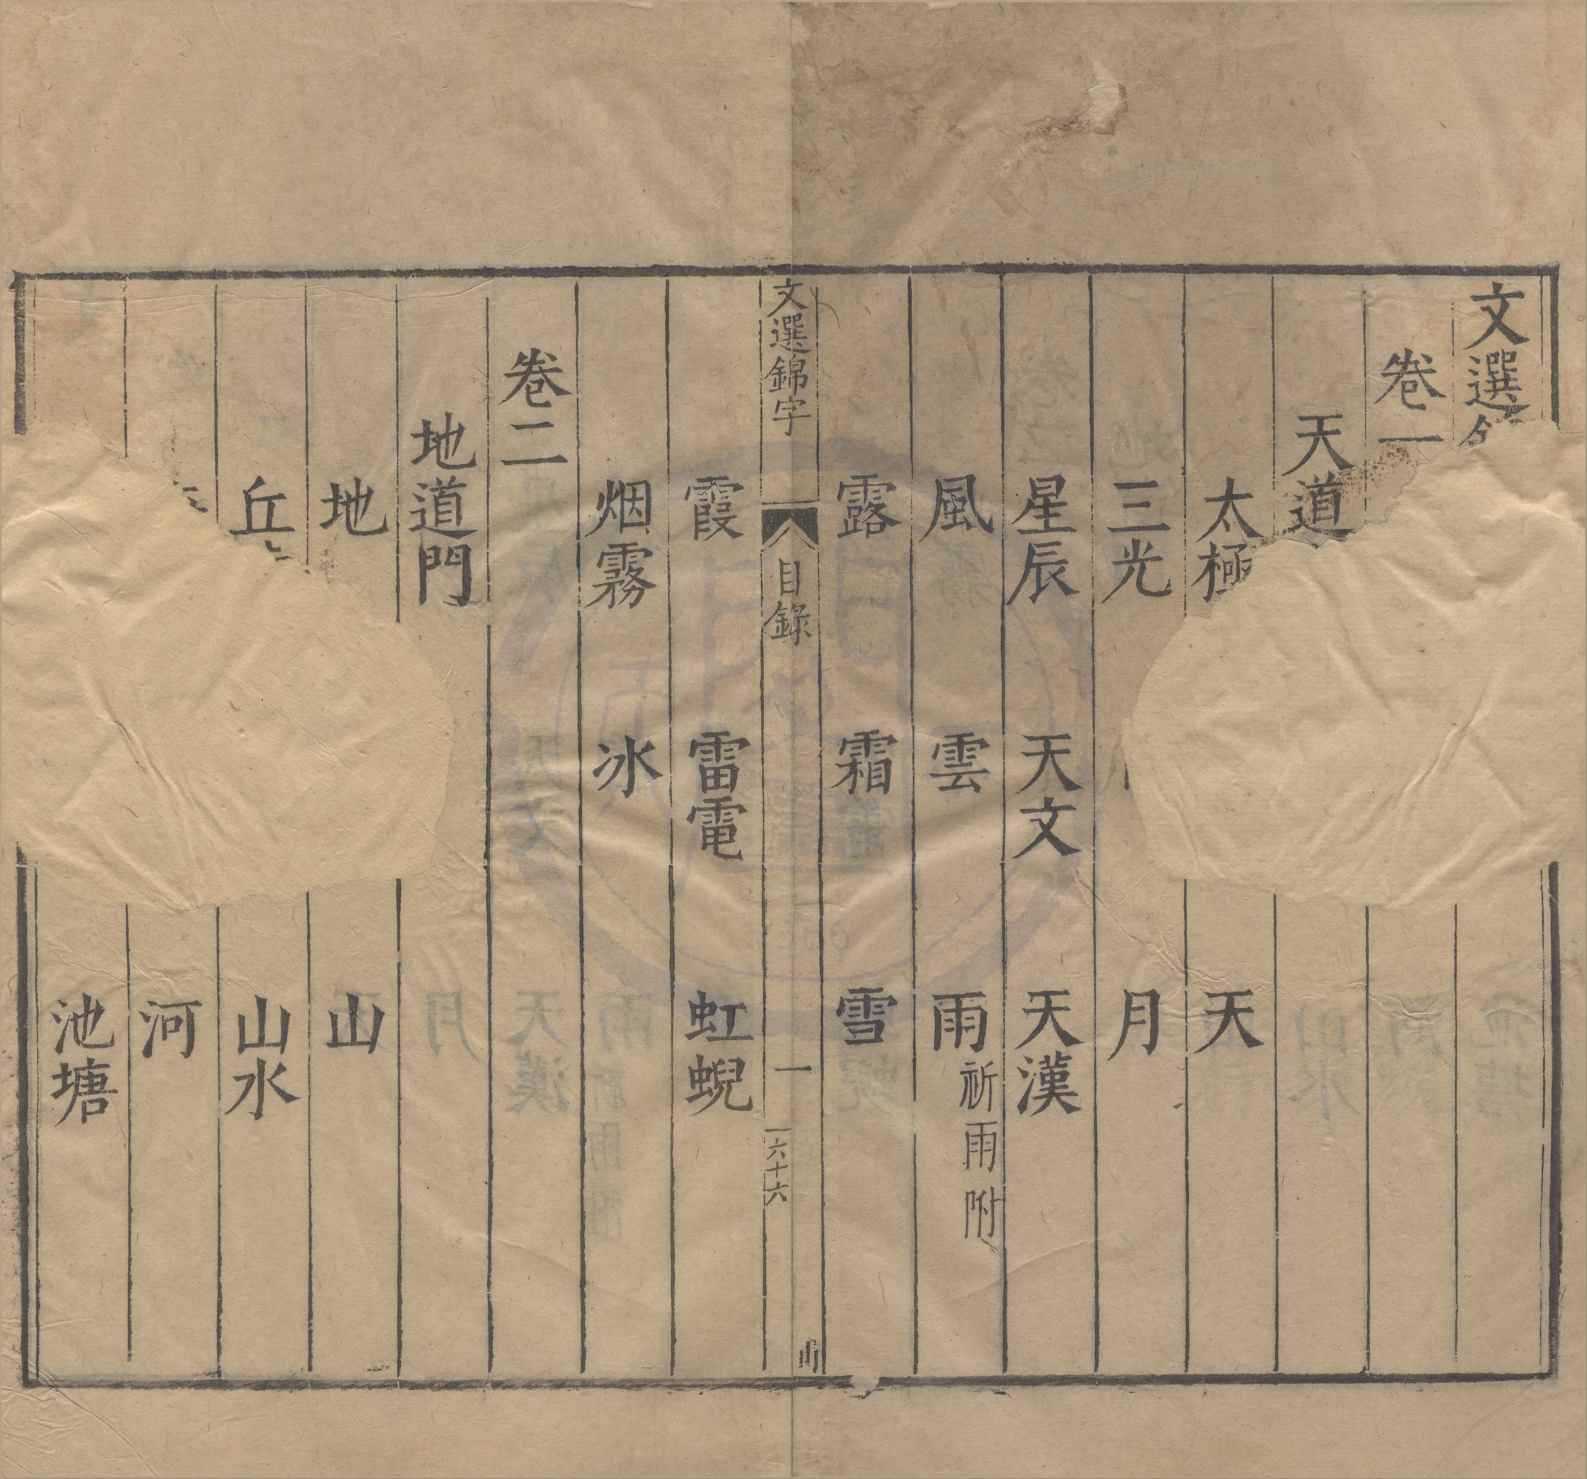 文選
卷一
天道
太極 天
三光 月
星辰 天文 天漢
風 雲 雨祈雨附
露 霜 雪
文選錦字 目錄 一 六十六
霞 雷電 虹蜺
烟霧 冰
卷二
地道門
地 山
丘 山水
河
池塘